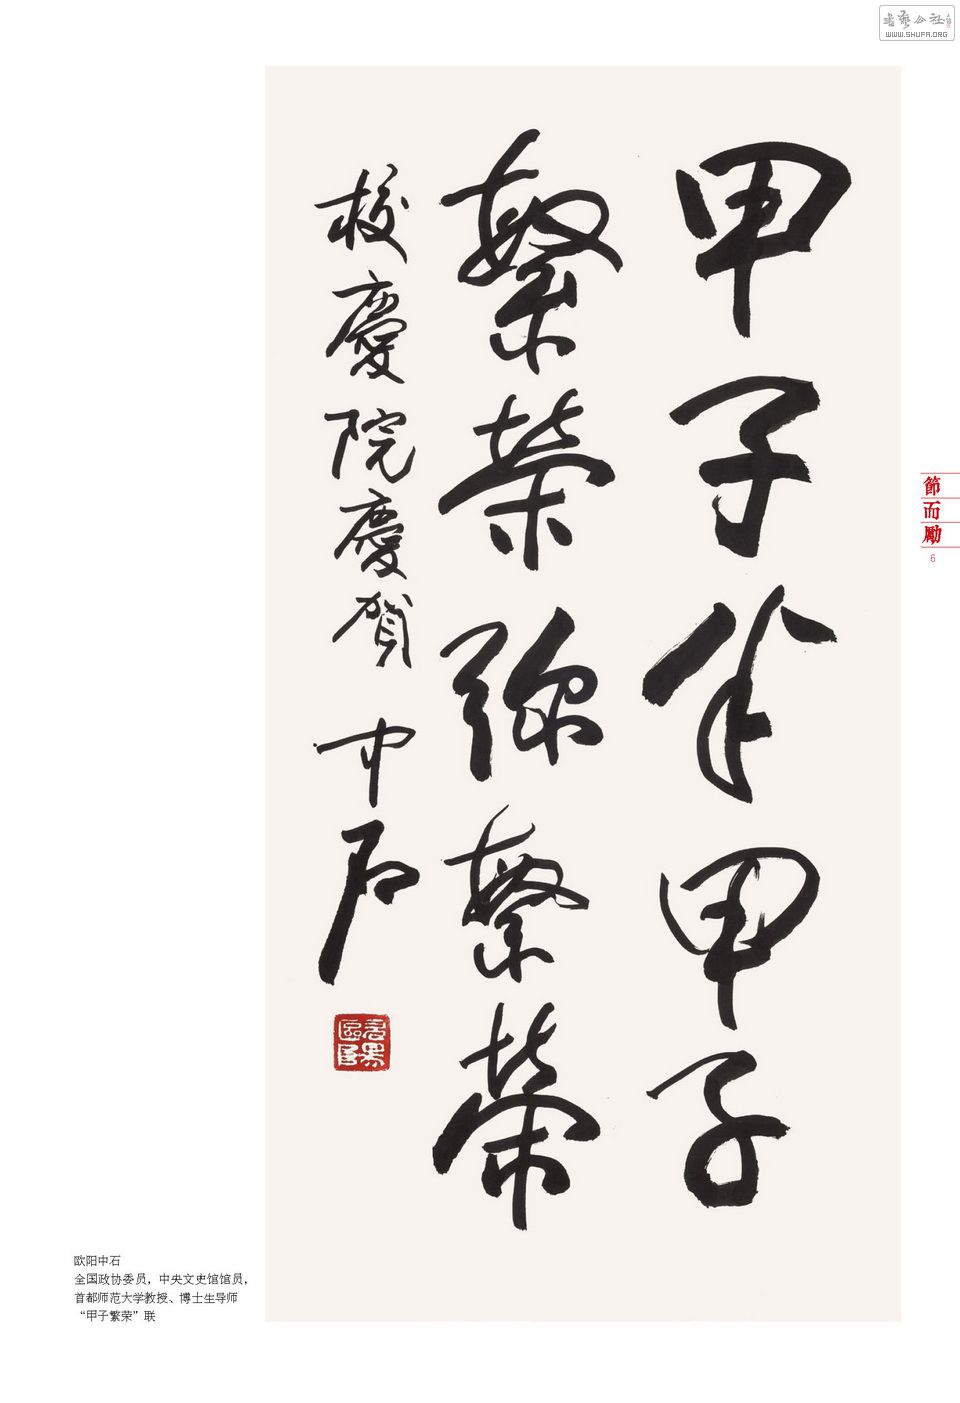 甲子半甲子
繁荣弥繁荣
校慶院慶賀
中石
節而勵
6
欧阳中石
全国政协委员，中央文史馆馆员，
首都师范大学教授、博士生导师
“甲子繁荣”联
WWW.SHUFA.ORG